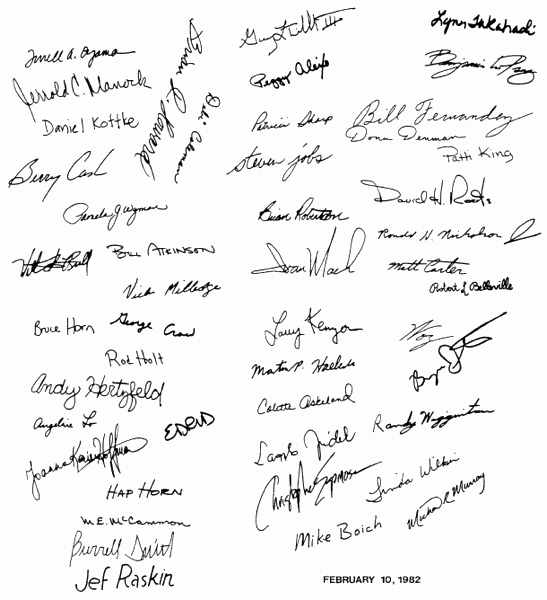 Terrell A. Oyama
Jerrold C. Manock
Daniel Kottke
Brian R. Howard
Berry Cash
Pamela G. Wyman
BILL ATKINSON
Vicki Milledge
Bruce Horn
George Crow
Rod Holt
Andy Hertzfeld
Angeline Lo
Joanna Karin Hoffman
HAP HORN
M.E. McCammon
Burrell Smith
Jef Raskin
Peggy Alexio
Patricia Sharp
steven jobs
Brian Robertson
Ivan Mach
Larry Kenyon
Martin P. Haeberli
Colette Askeland
Christopher Espinosa
Mike Boich
Lynn Takahashi
Benjamin
Bill Fernandez
Donn Denman
Patti King
David H. Roots
Ronald H. Nicholson
Matt Carter
Robert L Belleville
Woz
Randy Wigginton
Linda Wilkin
Michael R. Murray
FEBRUARY 10, 1982